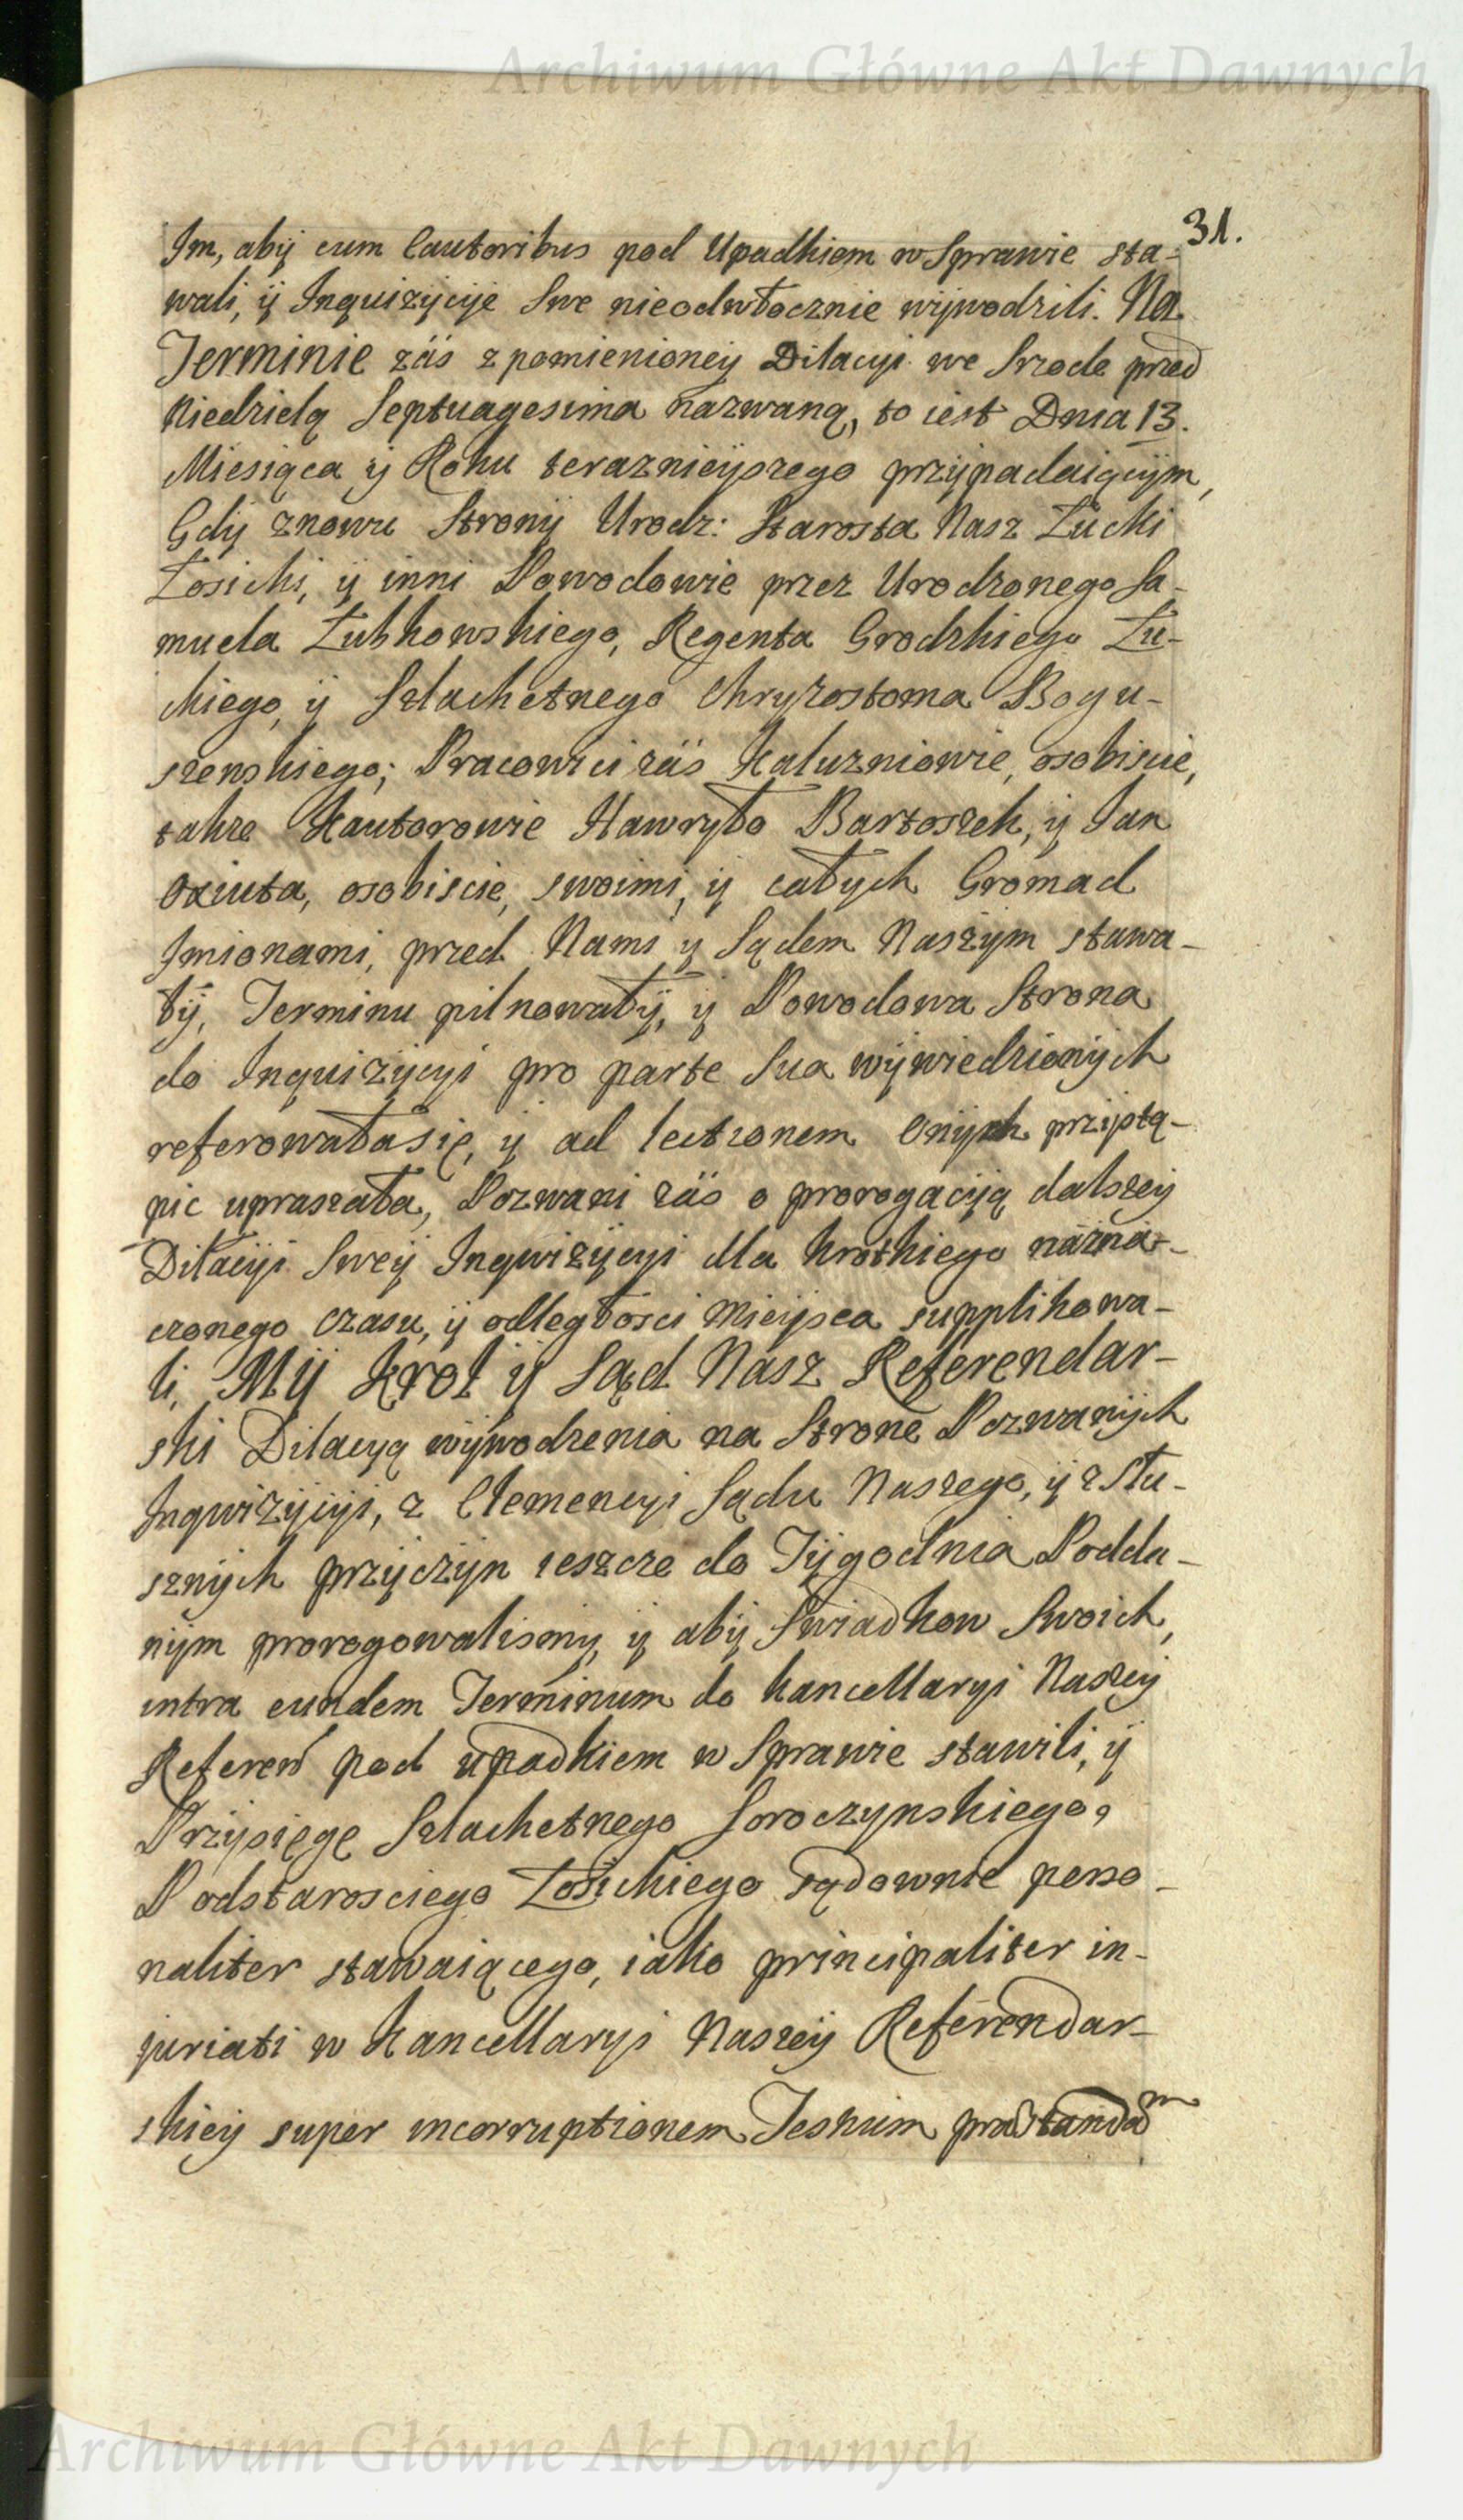 Archiwum Główne Akt Dawnych
31.
Im, abÿ cum Cautoribus pod Upadkiem w Sprawie sta-
wali, ÿ Inquizÿcÿie Swe nieodwłocznie wÿwodzili. Na
Terminie záś z pomienioneÿ Dilacÿi we Srzode przed
Niedzielą Septuagesima nazwaną, to iest Dnia 13.
Miesiąca ÿ Roku teraznieÿszego przÿpadaiącÿm,
Gdÿ znowu Stronÿ Urodz: Starosta Nasz Łucki
Łosicki, ÿ inni Powodowie przez Urodzonego Sa-
muela Łubkowskiego, Regenta Grodzkiego Łu-
ckiego, ÿ Szlachetnego Chryzostoma Bogu-
szenskiego; Pracowici záś Kaluzniowie, osobiscie,
także Kautorowie Hawryło Bartoszek, ÿ Jan
Oxiuta, osobiscie, swoimi, ÿ całych Gromad
Imionami, przed Nami y Sądem Naszÿm stawa-
łÿ, Terminu pilnowałÿ, ÿ Powodowa Strona
do Inquizÿcyi pro parte Sua wÿwiedzionÿch
referowałasię, ÿ ad lectionem Onÿch przÿstą-
pic upraszała, Pozwani záś o prorogacÿią dalszeÿ
Dilacÿi Sweÿ Inqwizÿcyi dla krotkiego nazna-
czonego czasu, ÿ odległosci Mieÿsca supplikowa-
li, MŸ Krol ÿ Sąd Nasz Referendar-
ski Dilacyą wÿwodzenia na Stronę Pozwanÿch
Inqwizÿcÿi, z Clemencyi Sądu Naszego, ÿ z Słu-
sznÿch przÿczÿn ieszcze do Tÿgodnia Podda-
nÿm prorogowalismy, ÿ abÿ Swiadkow Swoich,
intra eundem Terminum do Kancellaryi Naszeÿ
Referen pod upadkiem w Sprawie stawili, ÿ
Przÿsięgę Szlachetnego Soroczynskiego,
Podstarosciego Łosickiego sądownie perso-
naliter stawaiącego, iako principaliter in-
juriati w Kancellaryi Naszeÿ Referendar-
skieÿ super incorruptionem Testium præstandam
Archiwum Główne Akt Dawnych